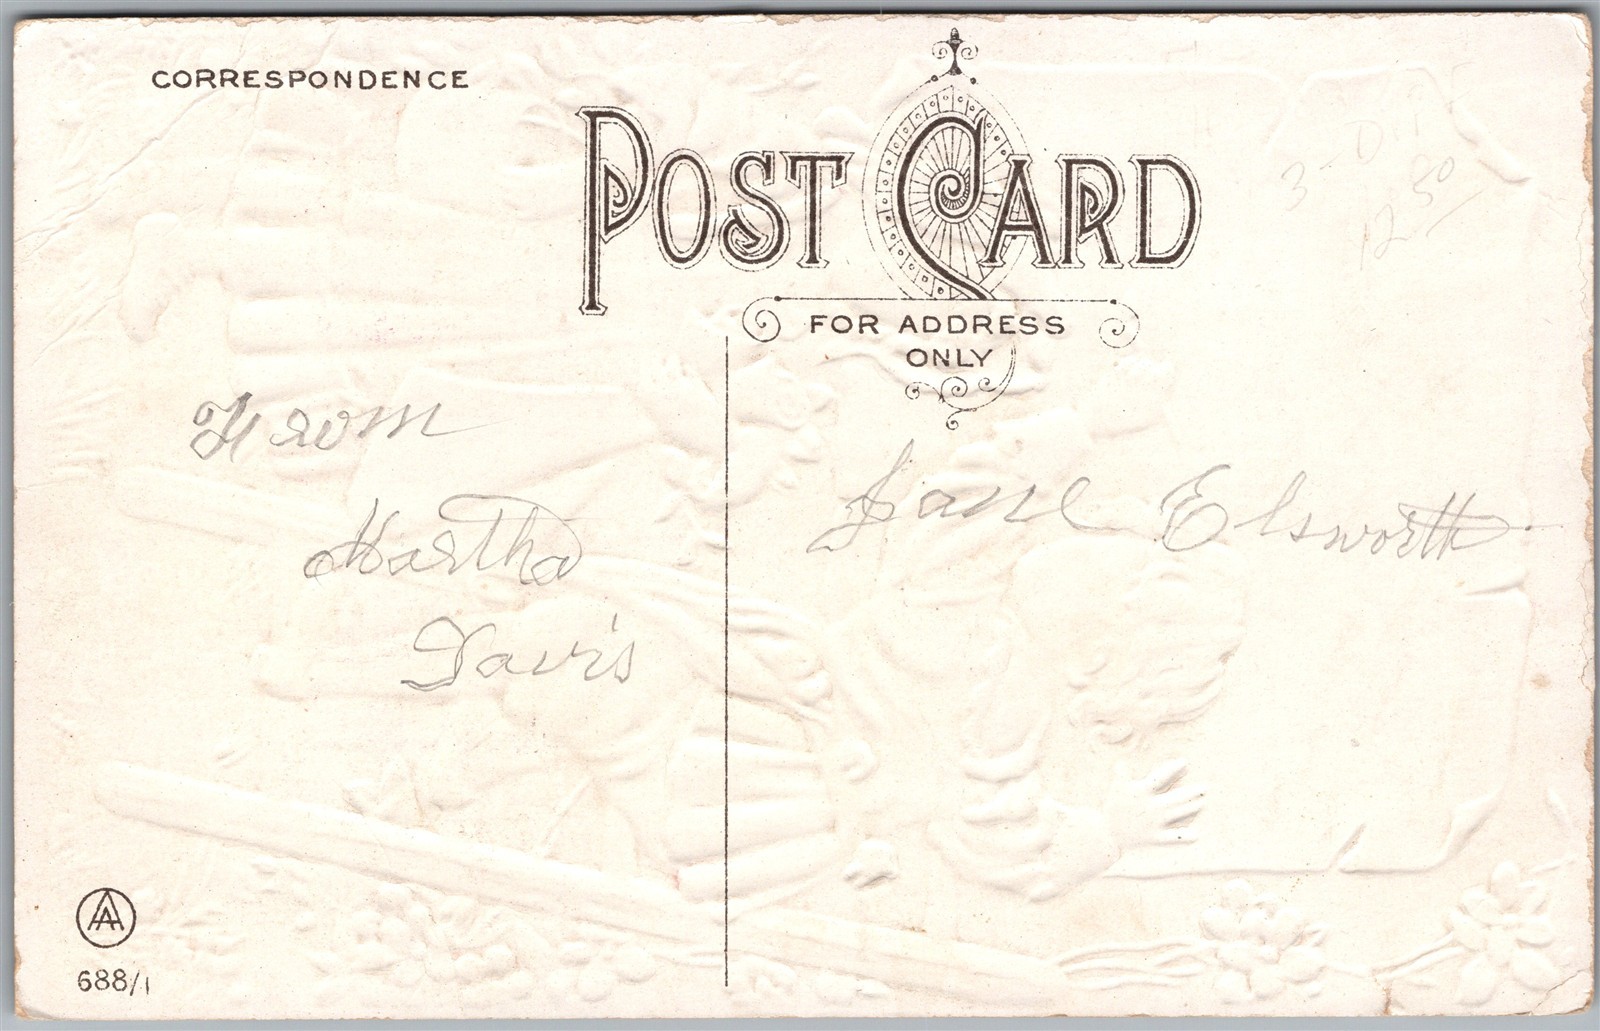 CORRESPONDENCE
POST CARD
FOR ADDRESS
ONLY
3-D
12 50
From
Martha
Davis
Jane Elsworth
AA
688/1